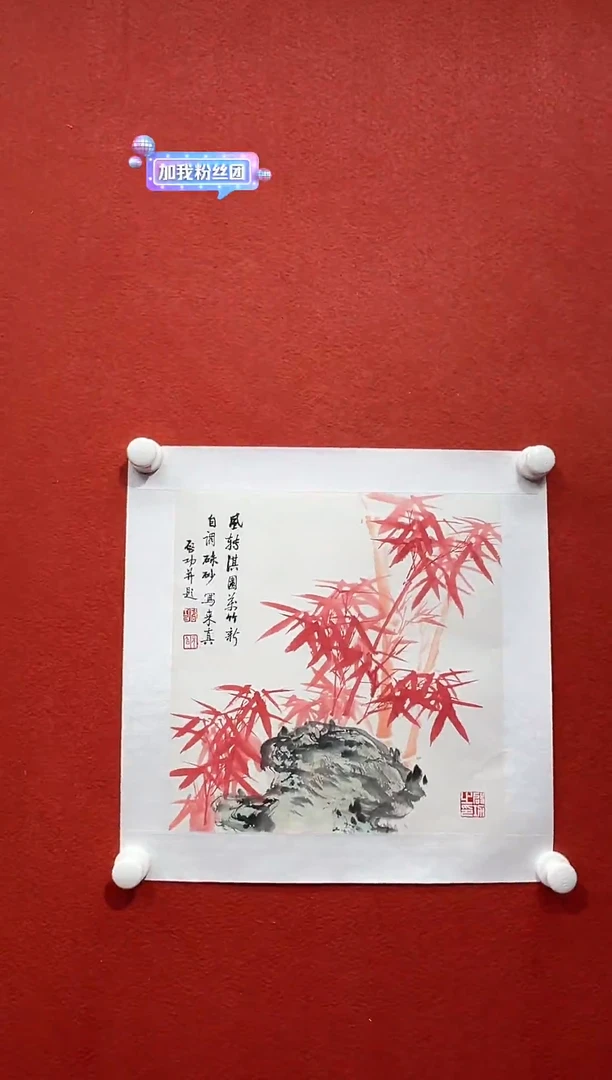 加我粉丝团
風轉淇園萬竹新
自調硃砂寫来真
启功并题